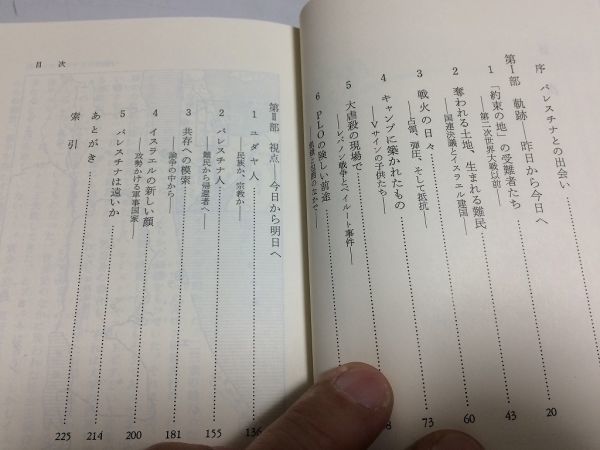 序 パレスチナとの出会い
第Ⅰ部 軌跡——昨日から今日へ
1 「約束の地」の受難者たち…………20
——第二次世界大戦以前——
2 奪われる土地、生まれる難民…………43
——国連決議とイスラエル建国——
3 戦火の日々…………60
——占領、弾圧、そして抵抗——
4 キャンプに築かれたもの…………73
——Vサインの子供たち——
5 大虐殺の現場で…………8
——レバノン戦争とベイルート事件——
6 PLOの険しい前途
のなかで——
第Ⅱ部 視点——今日から明日へ
1 ユダヤ人…………136
——民族か、宗教か——
2 パレスチナ人…………155
——難民から帰還者へ——
3 共存への模索…………181
——論争の中から——
4 イスラエルの新しい顔…………200
——攻勢かける軍事国家——
5 パレスチナは遠いか…………214
あとがき…………225
索引
目次